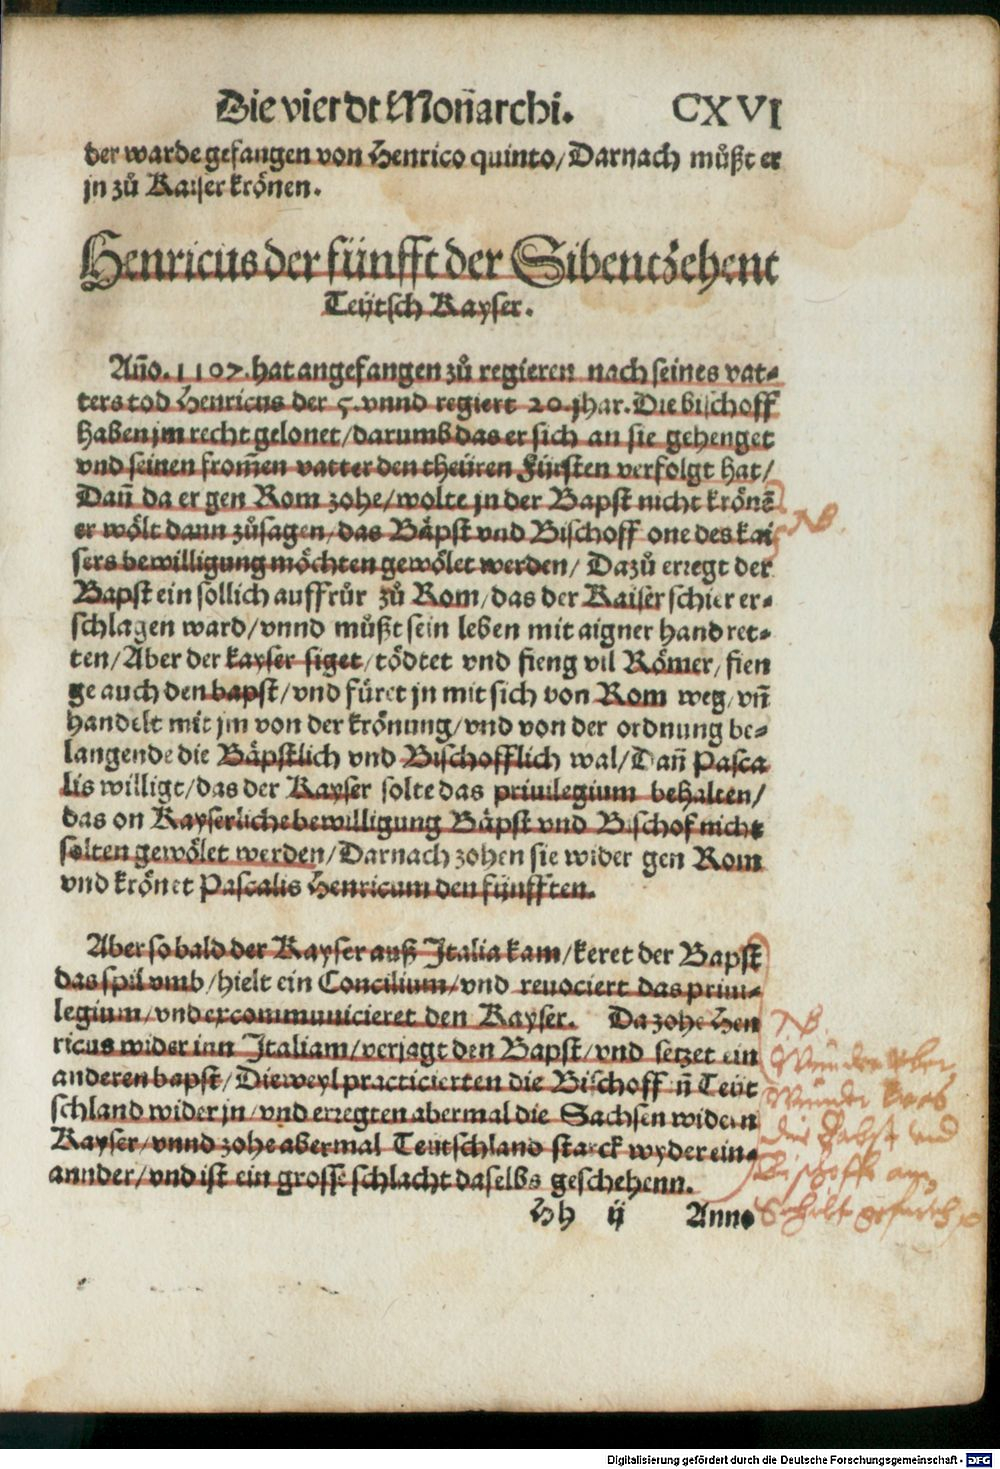 Die vierdt Monarchi. CXVI
der warde gefangen von Henrico quinto/Darnach můßt er
jn zů Kaiser krönen.
Henricus der fünfft der Sibentzehent
Teütsch Kayser.
Año. 1107. hat angefangen zů regieren nach seines vat-
ters tod Henricus der 5. vnnd regiert 20. jhar. Die bischoff
haben jm recht gelonet/darumb das er sich an sie gehenget
vnd seinen from̄en vatter den theüren Fürsten verfolgt hat/
Dañ da er gen Rom zohe/wolte jn der Bapst nicht krönē
er wölt dann zůsagen/das Bäpst vnd Bischoff one des kai
sers bewilligung möchten gewölet werden/ Dazů erregt der
Bapst ein sollich auffrůr zů Rom/das der Kaiser schier er-
schlagen ward/vnnd můßt sein leben mit aigner hand ret-
ten/Aber der kayser siget/tödtet vnd fieng vil Römer/fien
ge auch den bapst/vnd füret jn mit sich von Rom weg/vñ
handelt mit jm von der krönung/vnd von der ordnung be-
langende die Bäpstlich vnd Bischofflich wal/Dañ Pasca
lis willigt/das der Kayser solte das priuilegium behalten/
das on Kayserliche bewilligung Bäpst vnd Bischof nicht
solten gewölet werden/Darnach zohen sie wider gen Rom
vnd krönet Pascalis Henricum den fünfften.
Aber so bald der Kayser auß Italia kam/keret der Bapst
das spil vmb/hielt ein Concilium/vnd reuociert das priui-
legium/vnd excommunicieret den Kayser. Da zohe Hen
ricus wider inn Italiam/verjagt den Bapst/vnd setzet ein
anderen bapst/Dieweyl practicierten die Bischoff ñ Teüt
schland wider jn/vnd erregten abermal die Sachsen widern
Kayser/vnnd zohe abermal Teutschland starck wyder ein-
annder/vnd ist ein grosse schlacht daselbs geschehenn.
Hh ij Anno
NB
NB.
Wunder vber
Wunder
die Babst vnd
Bischoffe
Digitalisierung gefördert durch die Deutsche Forschungsgemeinschaft - DFG